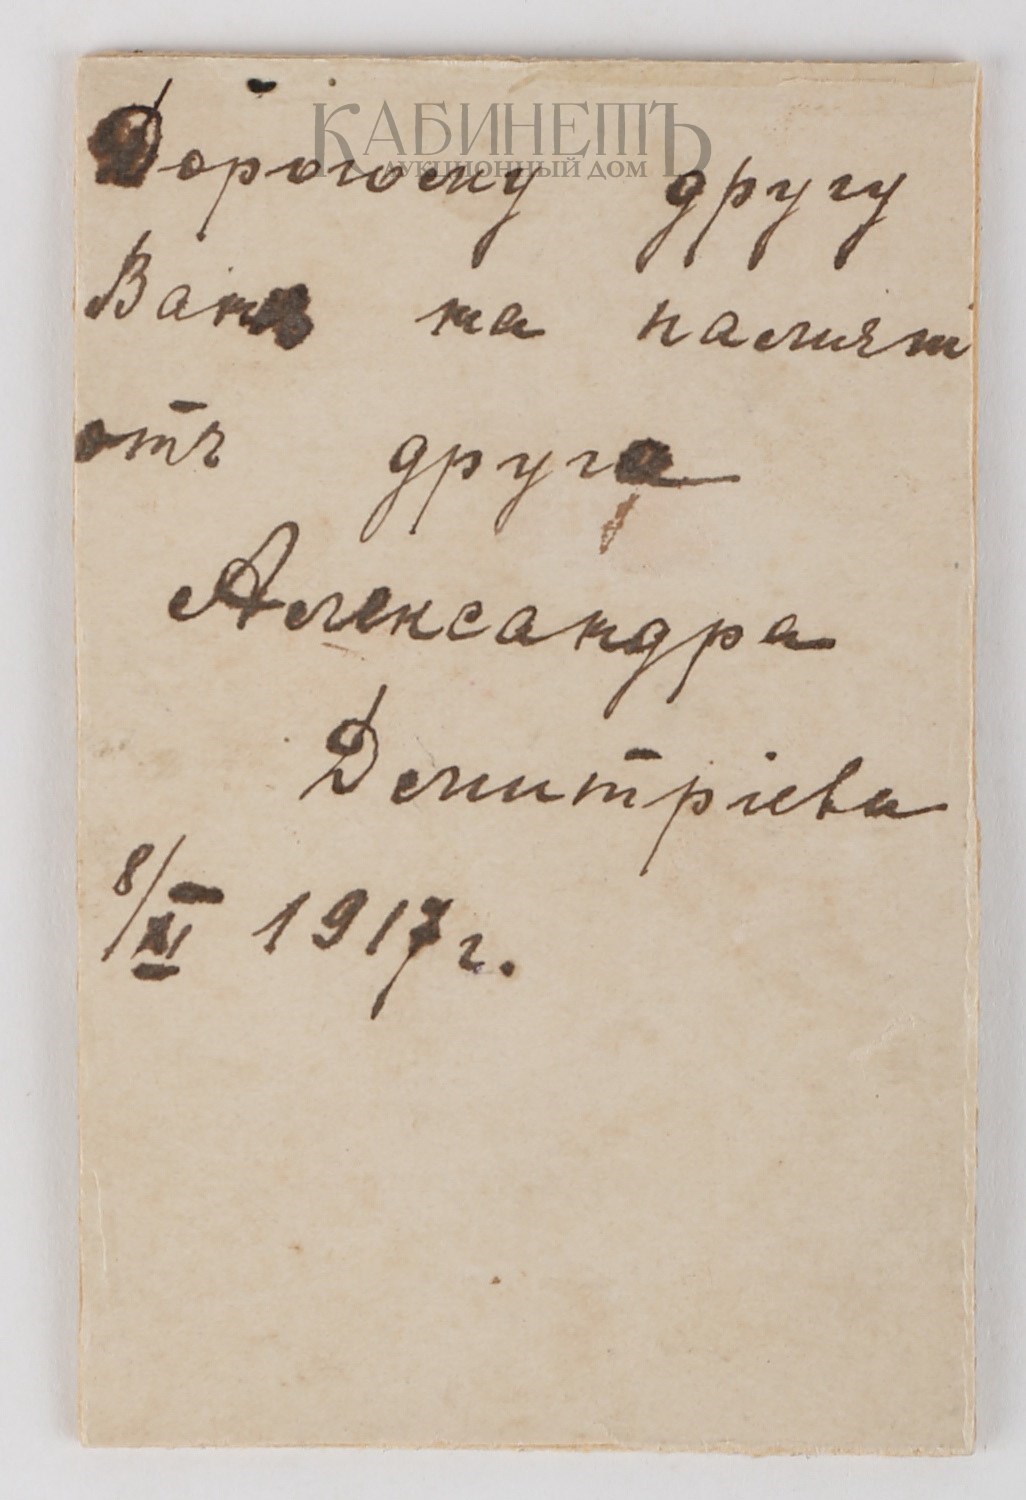 КАБИНЕТЪ
АУКЦИОННЫЙ ДОМ
Дорогому другу
Ване на памят
отъ друга
Александра
Демитріева
8/XI 1917 г.